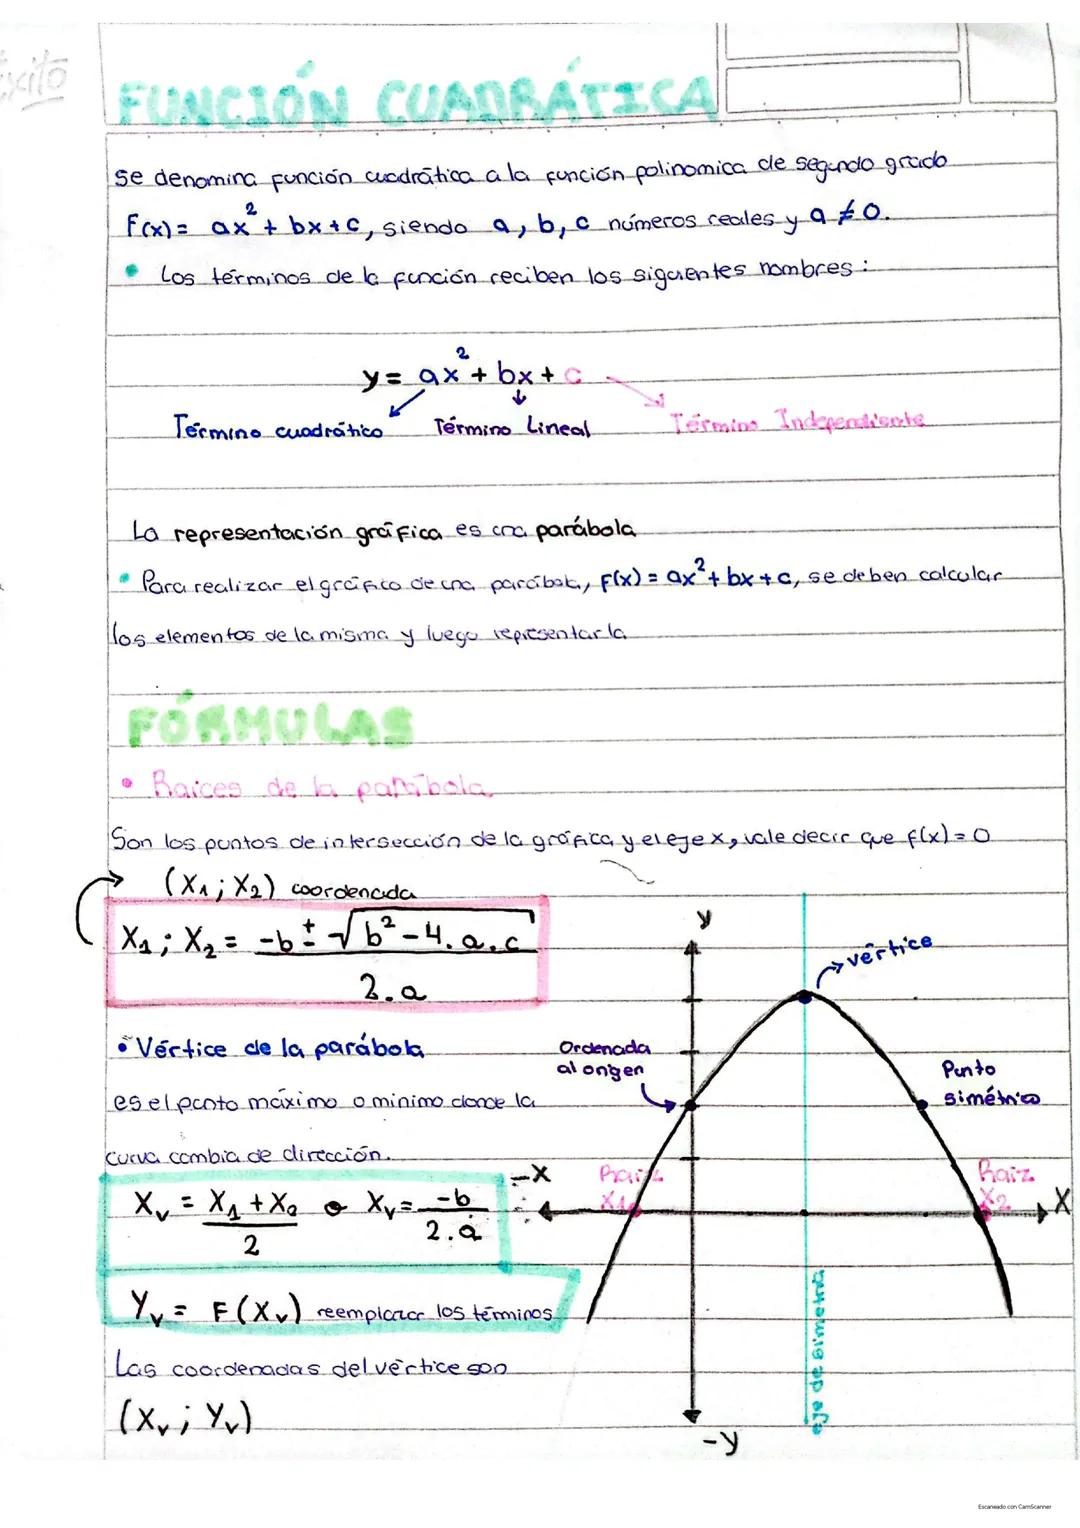 Éxito
FUNCIÓN CUADRÁTICA
Se denomina función cuadrática a la función polinomica de segundo grado
F(x)= ax² + bx+c, siendo a, b, c números reales y a ≠ 0.
• Los términos de la función reciben los siguientes nombres:
y= ax² + bx + c
Término cuadrático Término Lineal Término Independiente
La representación gráfica es una parábola
• Para realizar el gráfico de una parábola, f(x) = ax² + bx + c, se deben calcular
los elementos de la misma y luego representarla
FÓRMULAS
• Raices de la parábola
Son los puntos de intersección de la gráfica y el eje x, vale decir que f(x) = 0
(X₁; X₂) coordenada
X₁; X₂ = -b ± √b² - 4. a. c
2. a
• Vértice de la parábola
es el punto máximo o minimo donde la
curva cambia de dirección.
Xᵥ = X₁ + X₂ o Xᵥ = -b
2 2. a
Yᵥ = F(Xᵥ) reemplazar los términos
Las coordenadas del vértice son
(Xᵥ; Yᵥ)
y
vértice
Ordenada
al origen
Punto
simétrico
-X
Raiz
X₁
Raiz
X₂
X
eje de simetria
-y
Escaneado con CamScanner